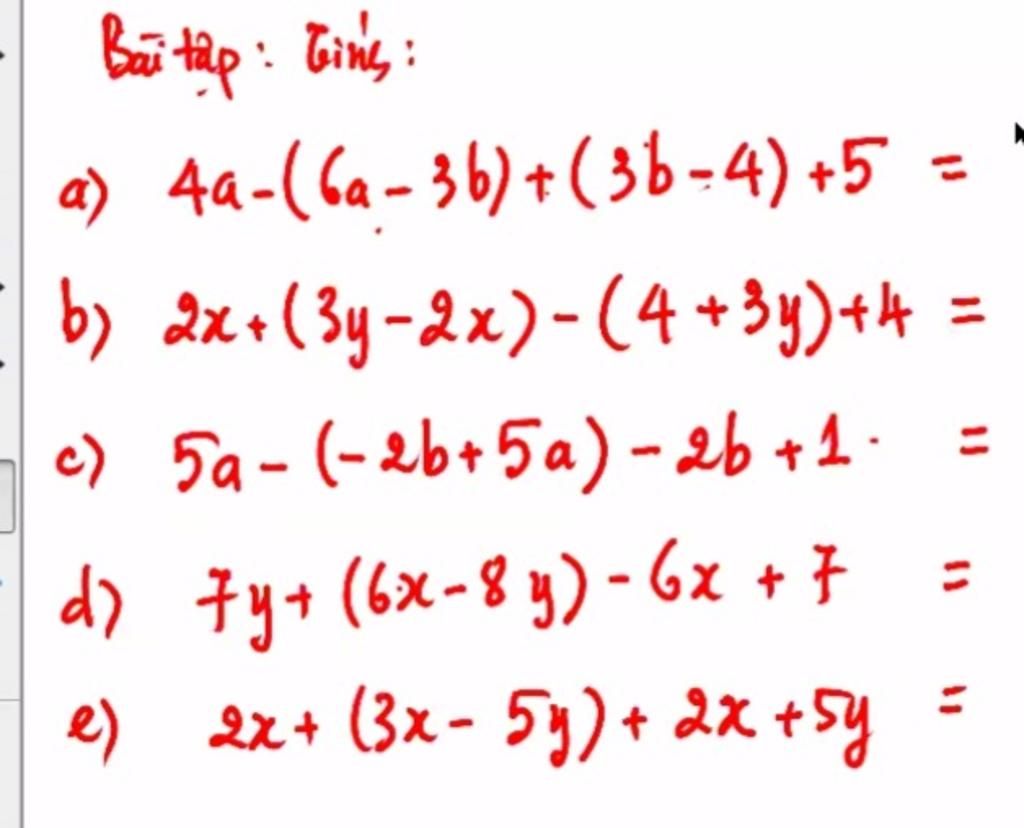 Bài tập : Tính :
a) 4a-(6a-3b)+(3b-4)+5 =
b) 2x+(3y-2x)-(4+3y)+4 =
c) 5a-(-2b+5a)-2b+1. =
d) 7y+(6x-8y)-6x+7 =
e) 2x+(3x-5y)+2x+5y =